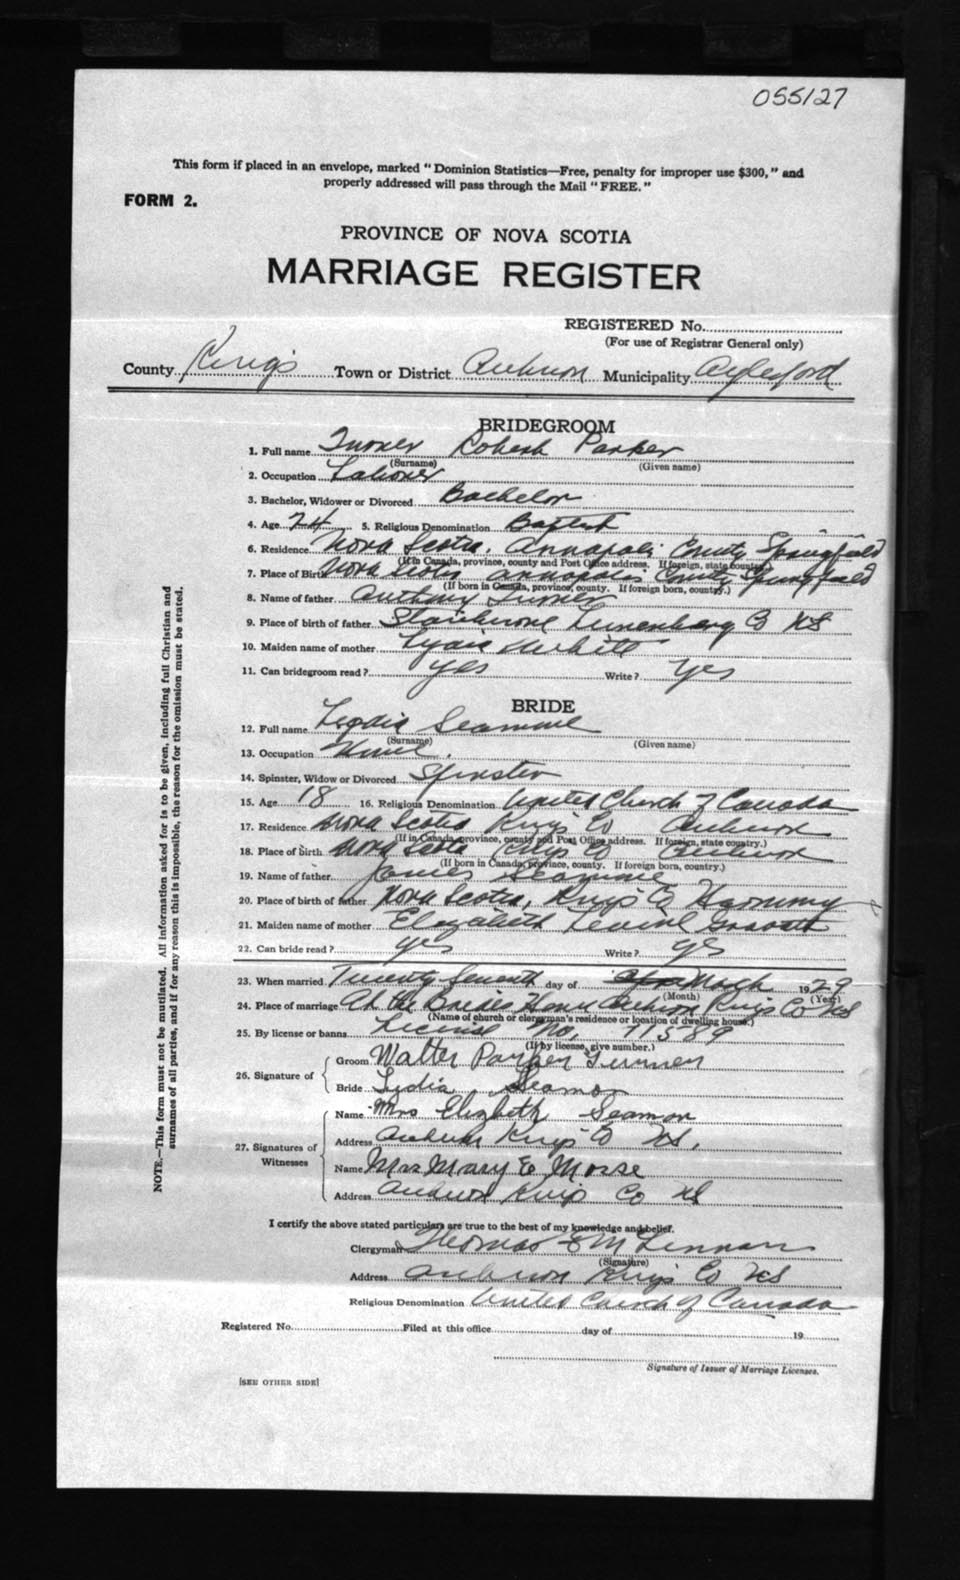 055127
This form if placed in an envelope, marked "Dominion Statistics—Free, penalty for improper use $300," and
properly addressed will pass through the Mail "FREE."
FORM 2.
PROVINCE OF NOVA SCOTIA
MARRIAGE REGISTER
REGISTERED No.
(For use of Registrar General only)
County Kings Town or District Auburn Municipality Aylesford
BRIDEGROOM
1. Full name Turner Robert Parker
(Surname) (Given name)
2. Occupation Laborer
3. Bachelor, Widower or Divorced Bachelor
4. Age 24 5. Religious Denomination Baptist
6. Residence Nova Scotia, Annapolis County Springfield
(If in Canada, province, county and Post Office address. If foreign, state country.)
7. Place of Birth Nova Scotia Annapolis County Springfield
(If born in Canada, province, county. If foreign born, country.)
8. Name of father Anthony Turner
9. Place of birth of father Lunenburg Co NS
10. Maiden name of mother Lydia
11. Can bridegroom read? yes Write? yes
BRIDE
12. Full name Lydia Seamone
(Surname) (Given name)
13. Occupation
14. Spinster, Widow or Divorced Spinster
15. Age 18 16. Religious Denomination United Church of Canada
17. Residence Nova Scotia Kings Co Auburn
(If in Canada, province, county and Post Office address. If foreign, state country.)
18. Place of birth Nova Scotia Kings Co Auburn
(If born in Canada, province, county. If foreign born, country.)
19. Name of father James Seamone
20. Place of birth of father Nova Scotia, Kings Co Harmony
21. Maiden name of mother Elizabeth
22. Can bride read? yes Write? yes
23. When married Twenty Seventh day of March 1929
(Month) (Year)
24. Place of marriage At the Brides Home Auburn Kings Co NS
(Name of church or clergyman's residence or location of dwelling house.)
25. By license or banns License No. 71589
(If by license, give number.)
26. Signature of
Groom Walter Parker Turner
Bride Lydia Seamon
27. Signatures of Witnesses
Name Mrs Elizbeth Seamon
Address Auburn Kings Co NS.
Name Mrs Mary E Morse
Address Auburn Kings Co NS
I certify the above stated particulars are true to the best of my knowledge and belief.
Clergyman Thomas E McLennan
(Signature)
Address Auburn Kings Co NS
Religious Denomination United Church of Canada
Registered No. Filed at this office day of 19
Signature of Issuer of Marriage Licenses.
[SEE OTHER SIDE]
NOTE.—This form must not be mutilated. All information asked for is to be given, including full Christian and
surnames of all parties, and if for any reason this is impossible, the reason for the omission must be stated.